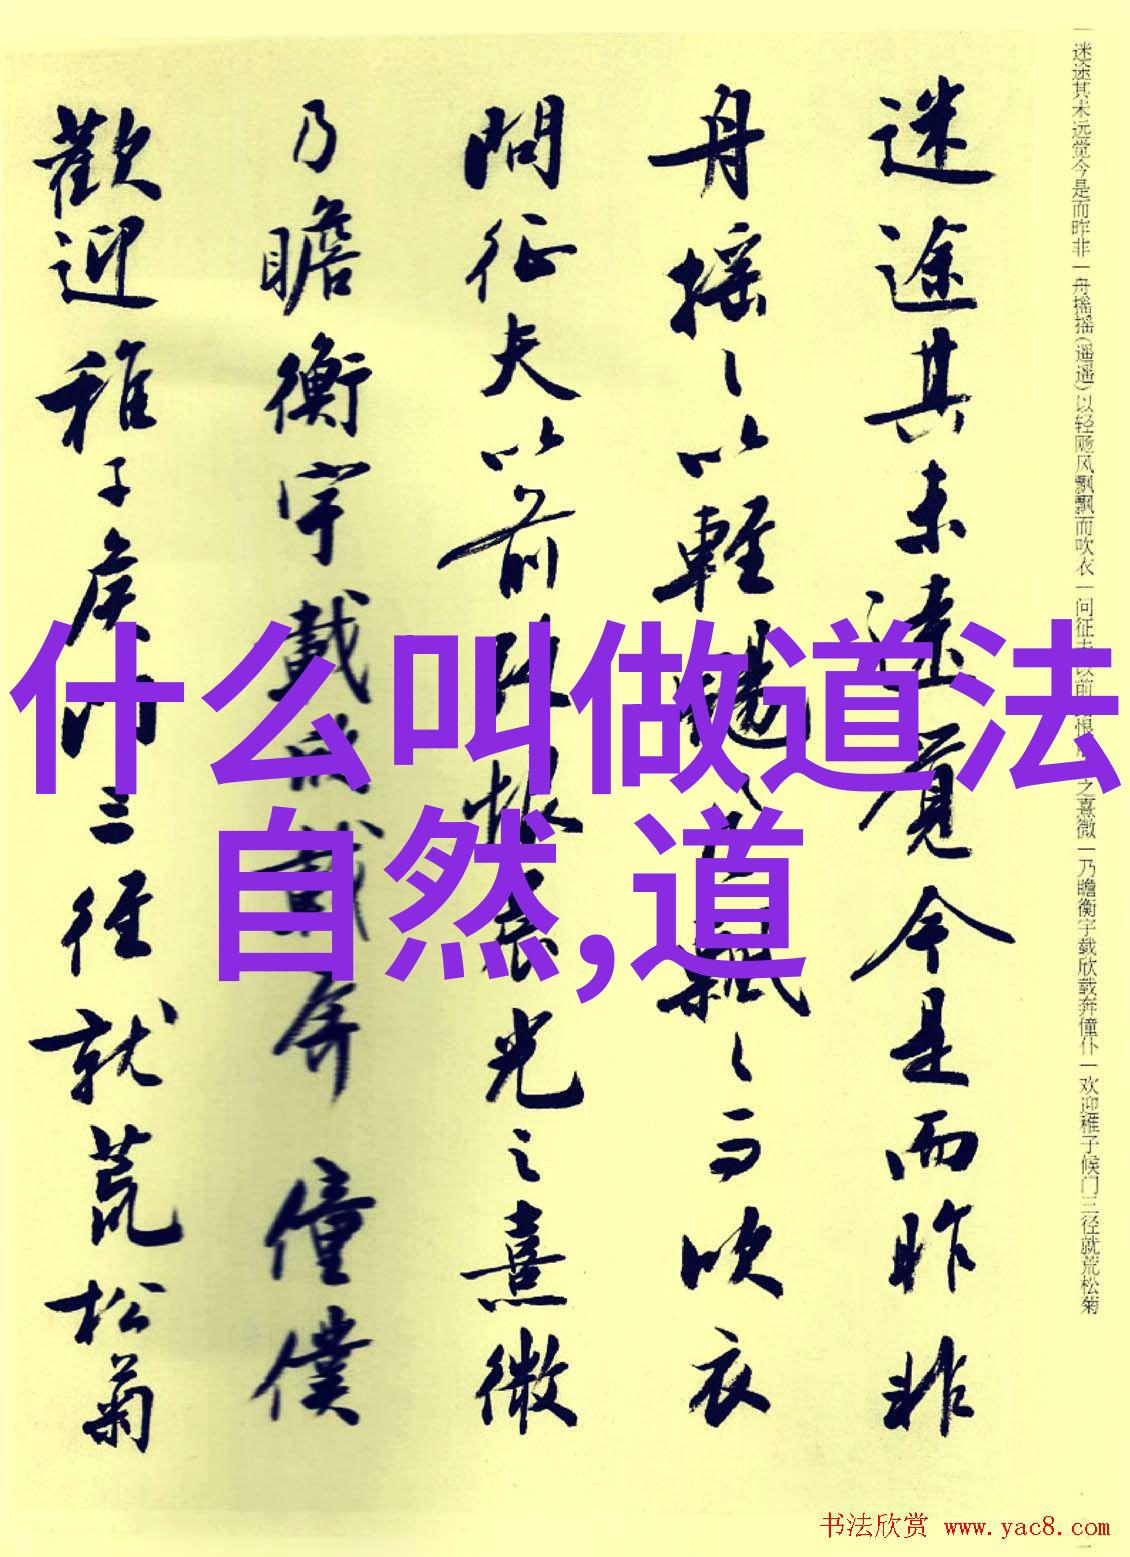 迷途其未遠覺今是而昨非
舟搖〻以輕颺風飄〻而吹衣
問征夫以前路恨晨光之熹微
乃瞻衡宇載欣載奔僮僕
歡迎稚子候門三徑就荒松菊
一迷途其未远觉今是而昨非一舟摇摇(遥遥)以轻飏风飘飘而吹衣一问征夫以前 恨 之熹微一乃瞻衡宇载欣载奔僮仆一欢迎稚子候门三径就荒松菊
什么叫做道法
自然,道
书法欣赏 www.yac8.com